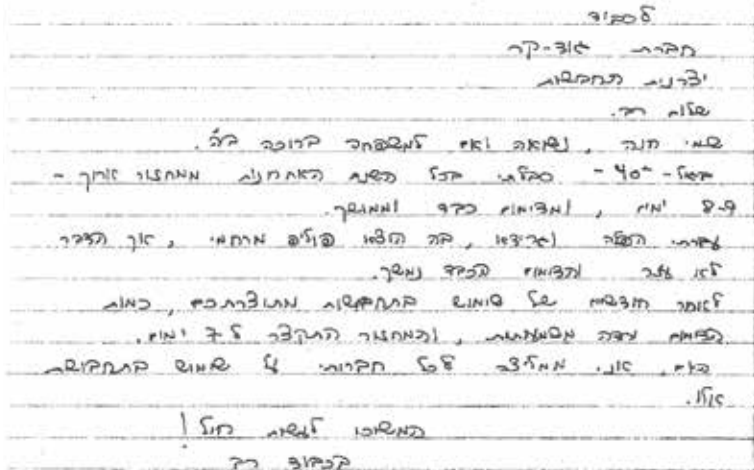 לכבוד
חברת גוד-קר
יצרנית תחבושות
שלום רב.
שמי חנה, נשואה ואם למשפחה ברוכה ב"ה.
בגיל -40- סבלתי בכל השנה האחרונה ממחזור ארוך -
8-9 ימים, ומדימום כבד וממושך.
עברתי הפלה וגרידא, בה הוצא פוליפ מרחמי, אך הדבר
לא עזר והדימום הכבד נמשך.
לאחר חודשיים של שימוש בתחבושות מתוצרתכם, כמות
הדימום ירדה משמעותית, והמחזור התקצר ל 7 ימים.
היום, אני ממליצה לכל חברותי על שמוש בתחבושות
אלו.
המשיכו לעשות חיל!
בכבוד רב